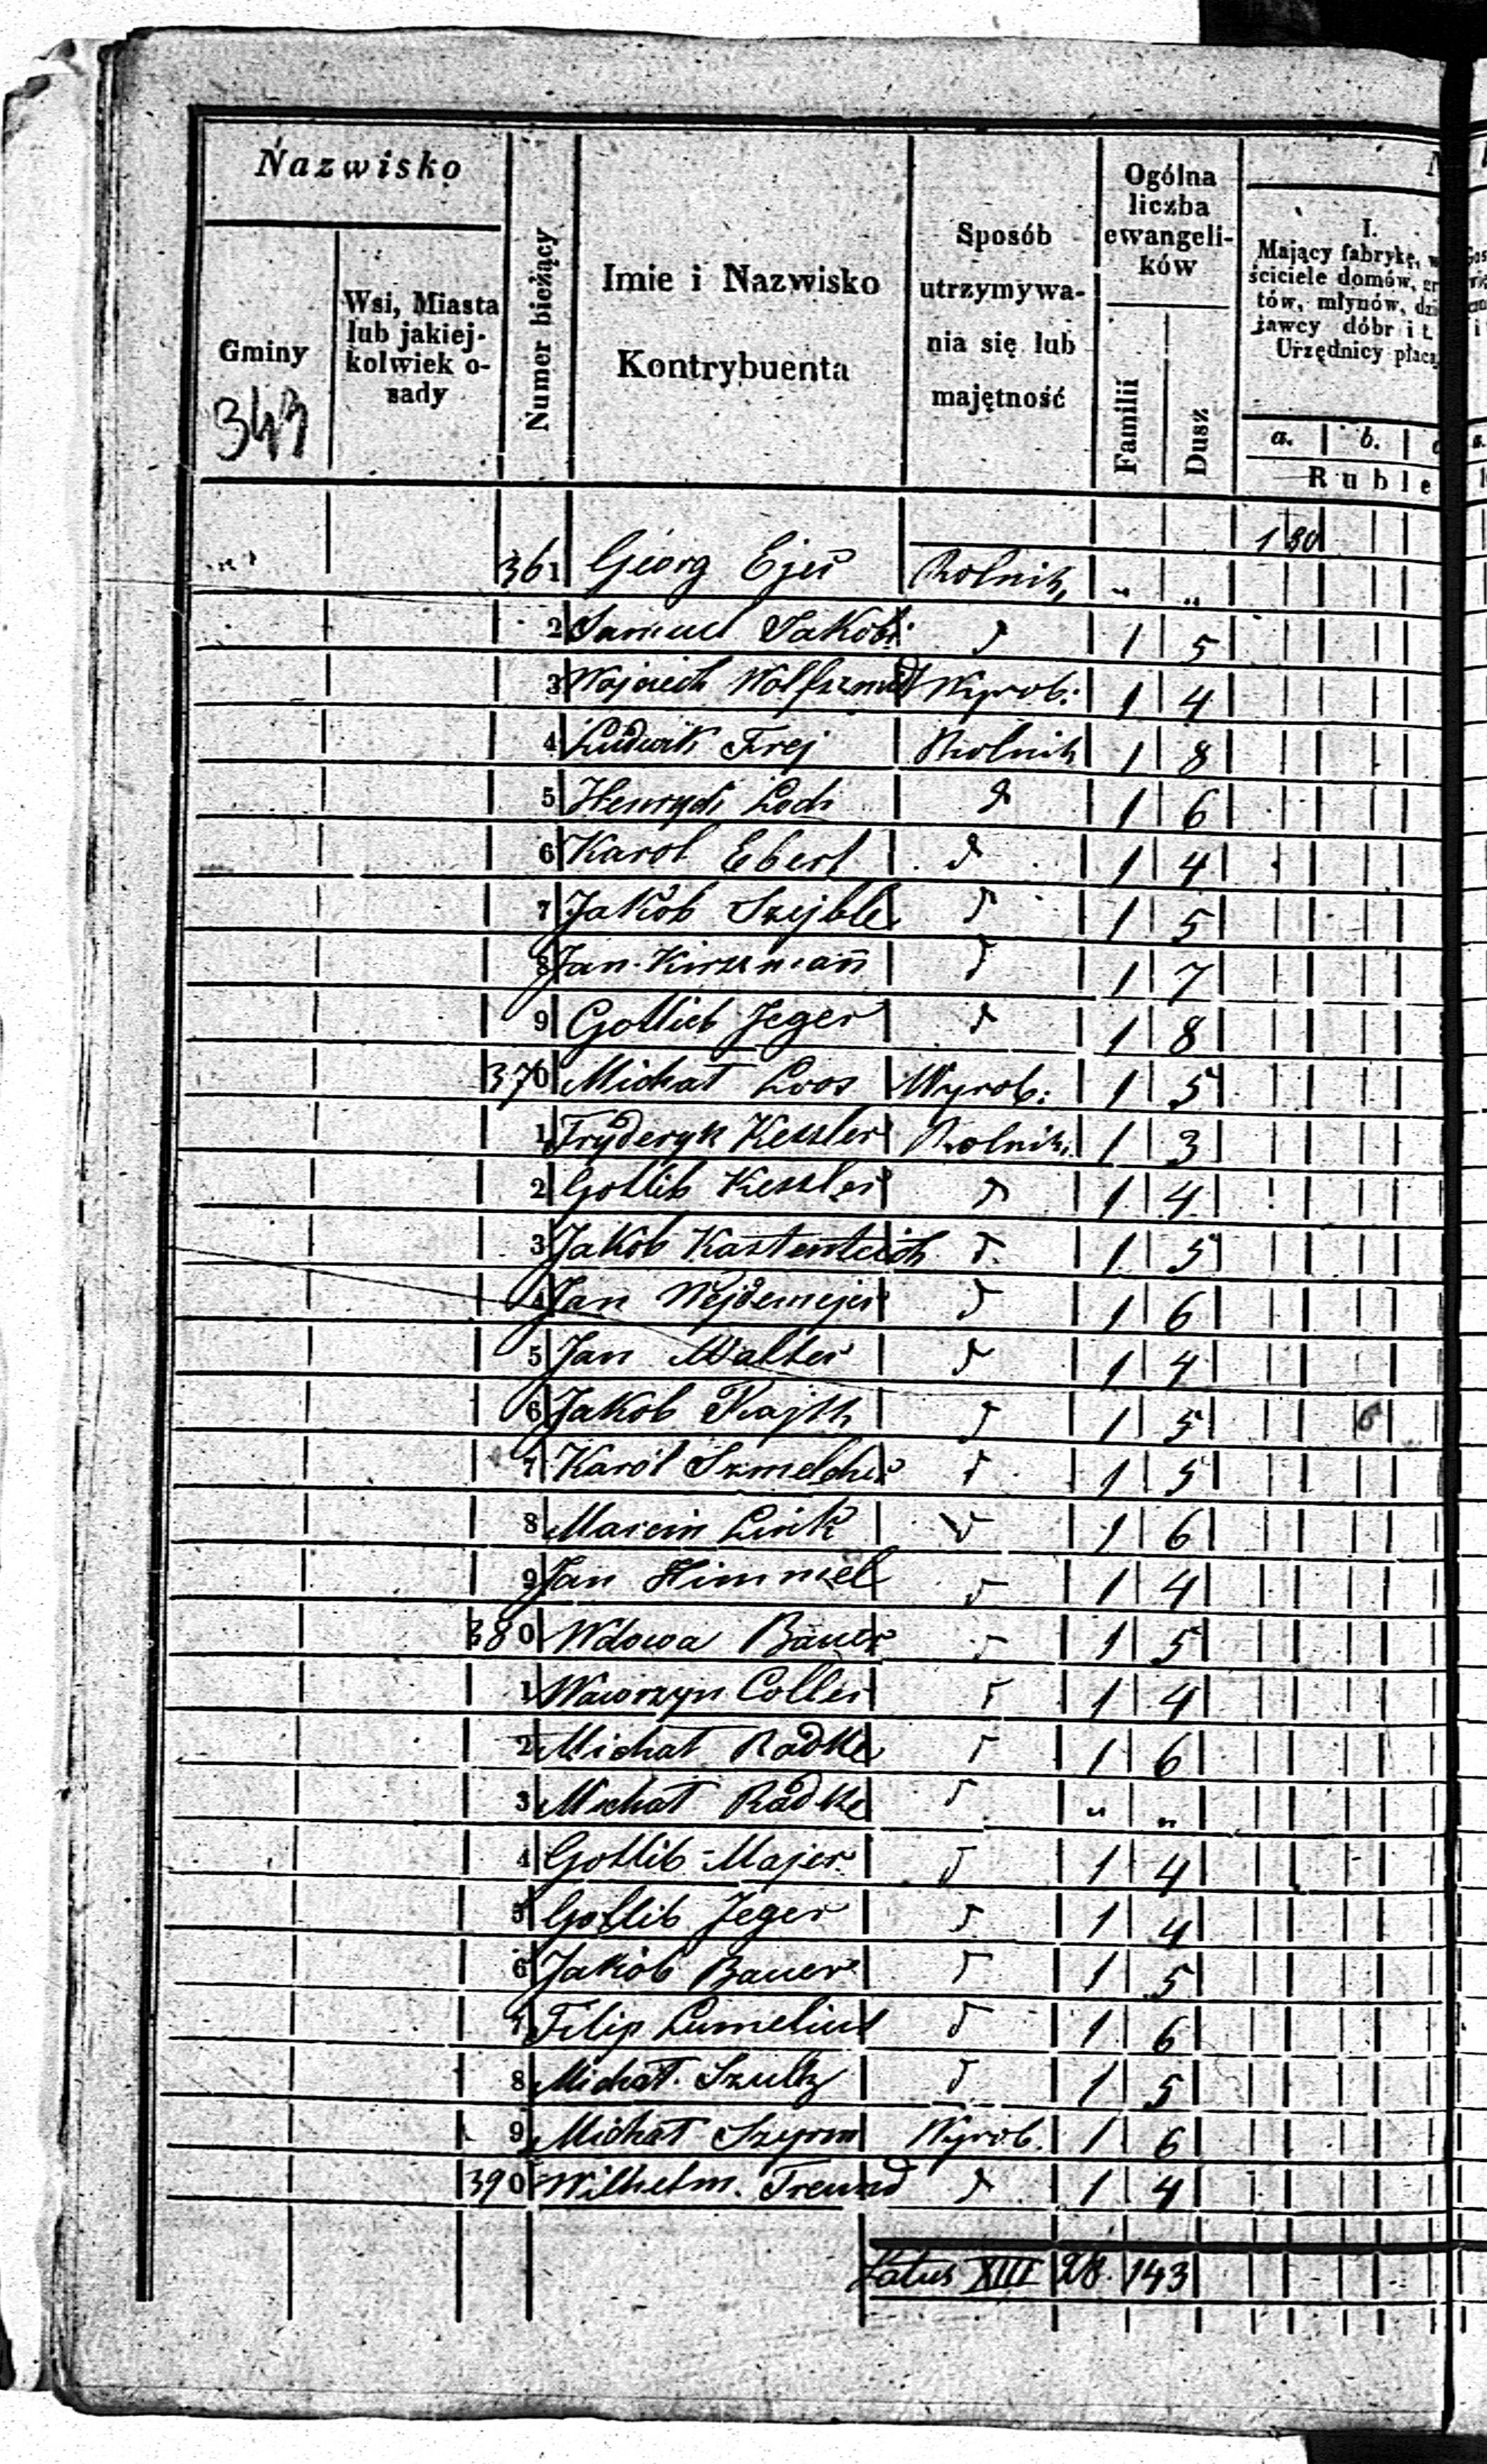 Nazwisko
Gminy
343
Wsi, Miasta
lub jakiej-
kolwiek o-
sady
Numer bieżący
Imie i Nazwisko
Kontrybuenta
Sposób
utrzymywa-
nia się lub
majętność
Ogólna
liczba
ewangeli-
ków
Familii
Dusz
I.
Mający fabrykę,
ściciele domów,
tów, młynów,
jawcy dóbr i t.
Urzędnicy
a. b.
Ruble
361 Georg Ejer Rolnik " " 1 80
2 Samuel Jakobi d 1 5
3 Wojciech Wolfszmid Wyrob: 1 4
4 Ludwik Frej Rolnik 1 8
5 Henryck Loch d 1 6
6 Karol Ebert d 1 4
7 Jakób Szejble d 1 5
8 Jan Kirszmann d 1 7
9 Gottlieb Jeger d 1 8
370 Michał Loos Wyrob: 1 5
1 Fryderyk Kessler Rolnik 1 3
2 Gottlib Kessler d 1 4
3 Jakób Kastenteich d 1 5
4 Jan Wejdemejer d 1 6
5 Jan Walter d 1 4
6 Jakob Rajth d 1 5
7 Karól Szmelcher d 1 5
8 Marcin Link d 1 6
9 Jan Himmel d 1 4
380 Wdowa Bauer d 1 5
1 Wawrzyn Coller d 1 4
2 Michał Radke d 1 6
3 Michał Radke d " "
4 Gottlib Majer d 1 4
5 Gottlib Jeger d 1 4
6 Jakób Bauer d 1 5
7 Filip Lumelius d 1 6
8 Michał Szultz d 1 5
9 Michał Wyrob. 1 6
390 Wilhelm Freund d 1 4
Latus XIII 28. 143